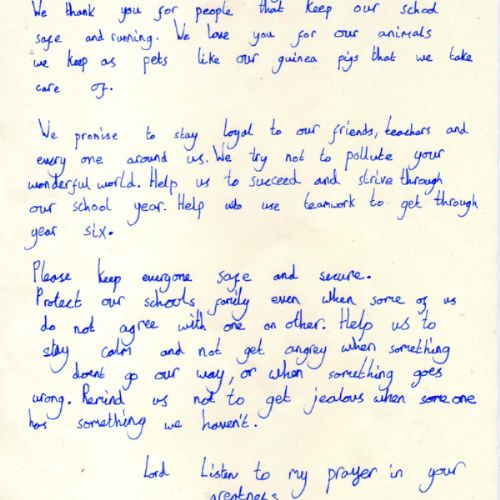 We thank you for people that keep our school
safe and running. We love you for our animals
we keep as pets like our guinea pigs that we take
care of.
We promise to stay loyal to our friends, teachers and
every one around us. We try not to pollute your
wonderful world. Help us to succeed and strive through
our school year. Help us use teamwork to get through
year six.
Please keep everyone safe and secure.
Protect our schools family even when some of us
do not agree with one an other. Help us to
stay calm and not get angrey when something
doesnt go our way, or when something goes
wrong. Remind us not to get jealous when some one
has something we haven't.
Lord Listen to my prayer in your
greatness